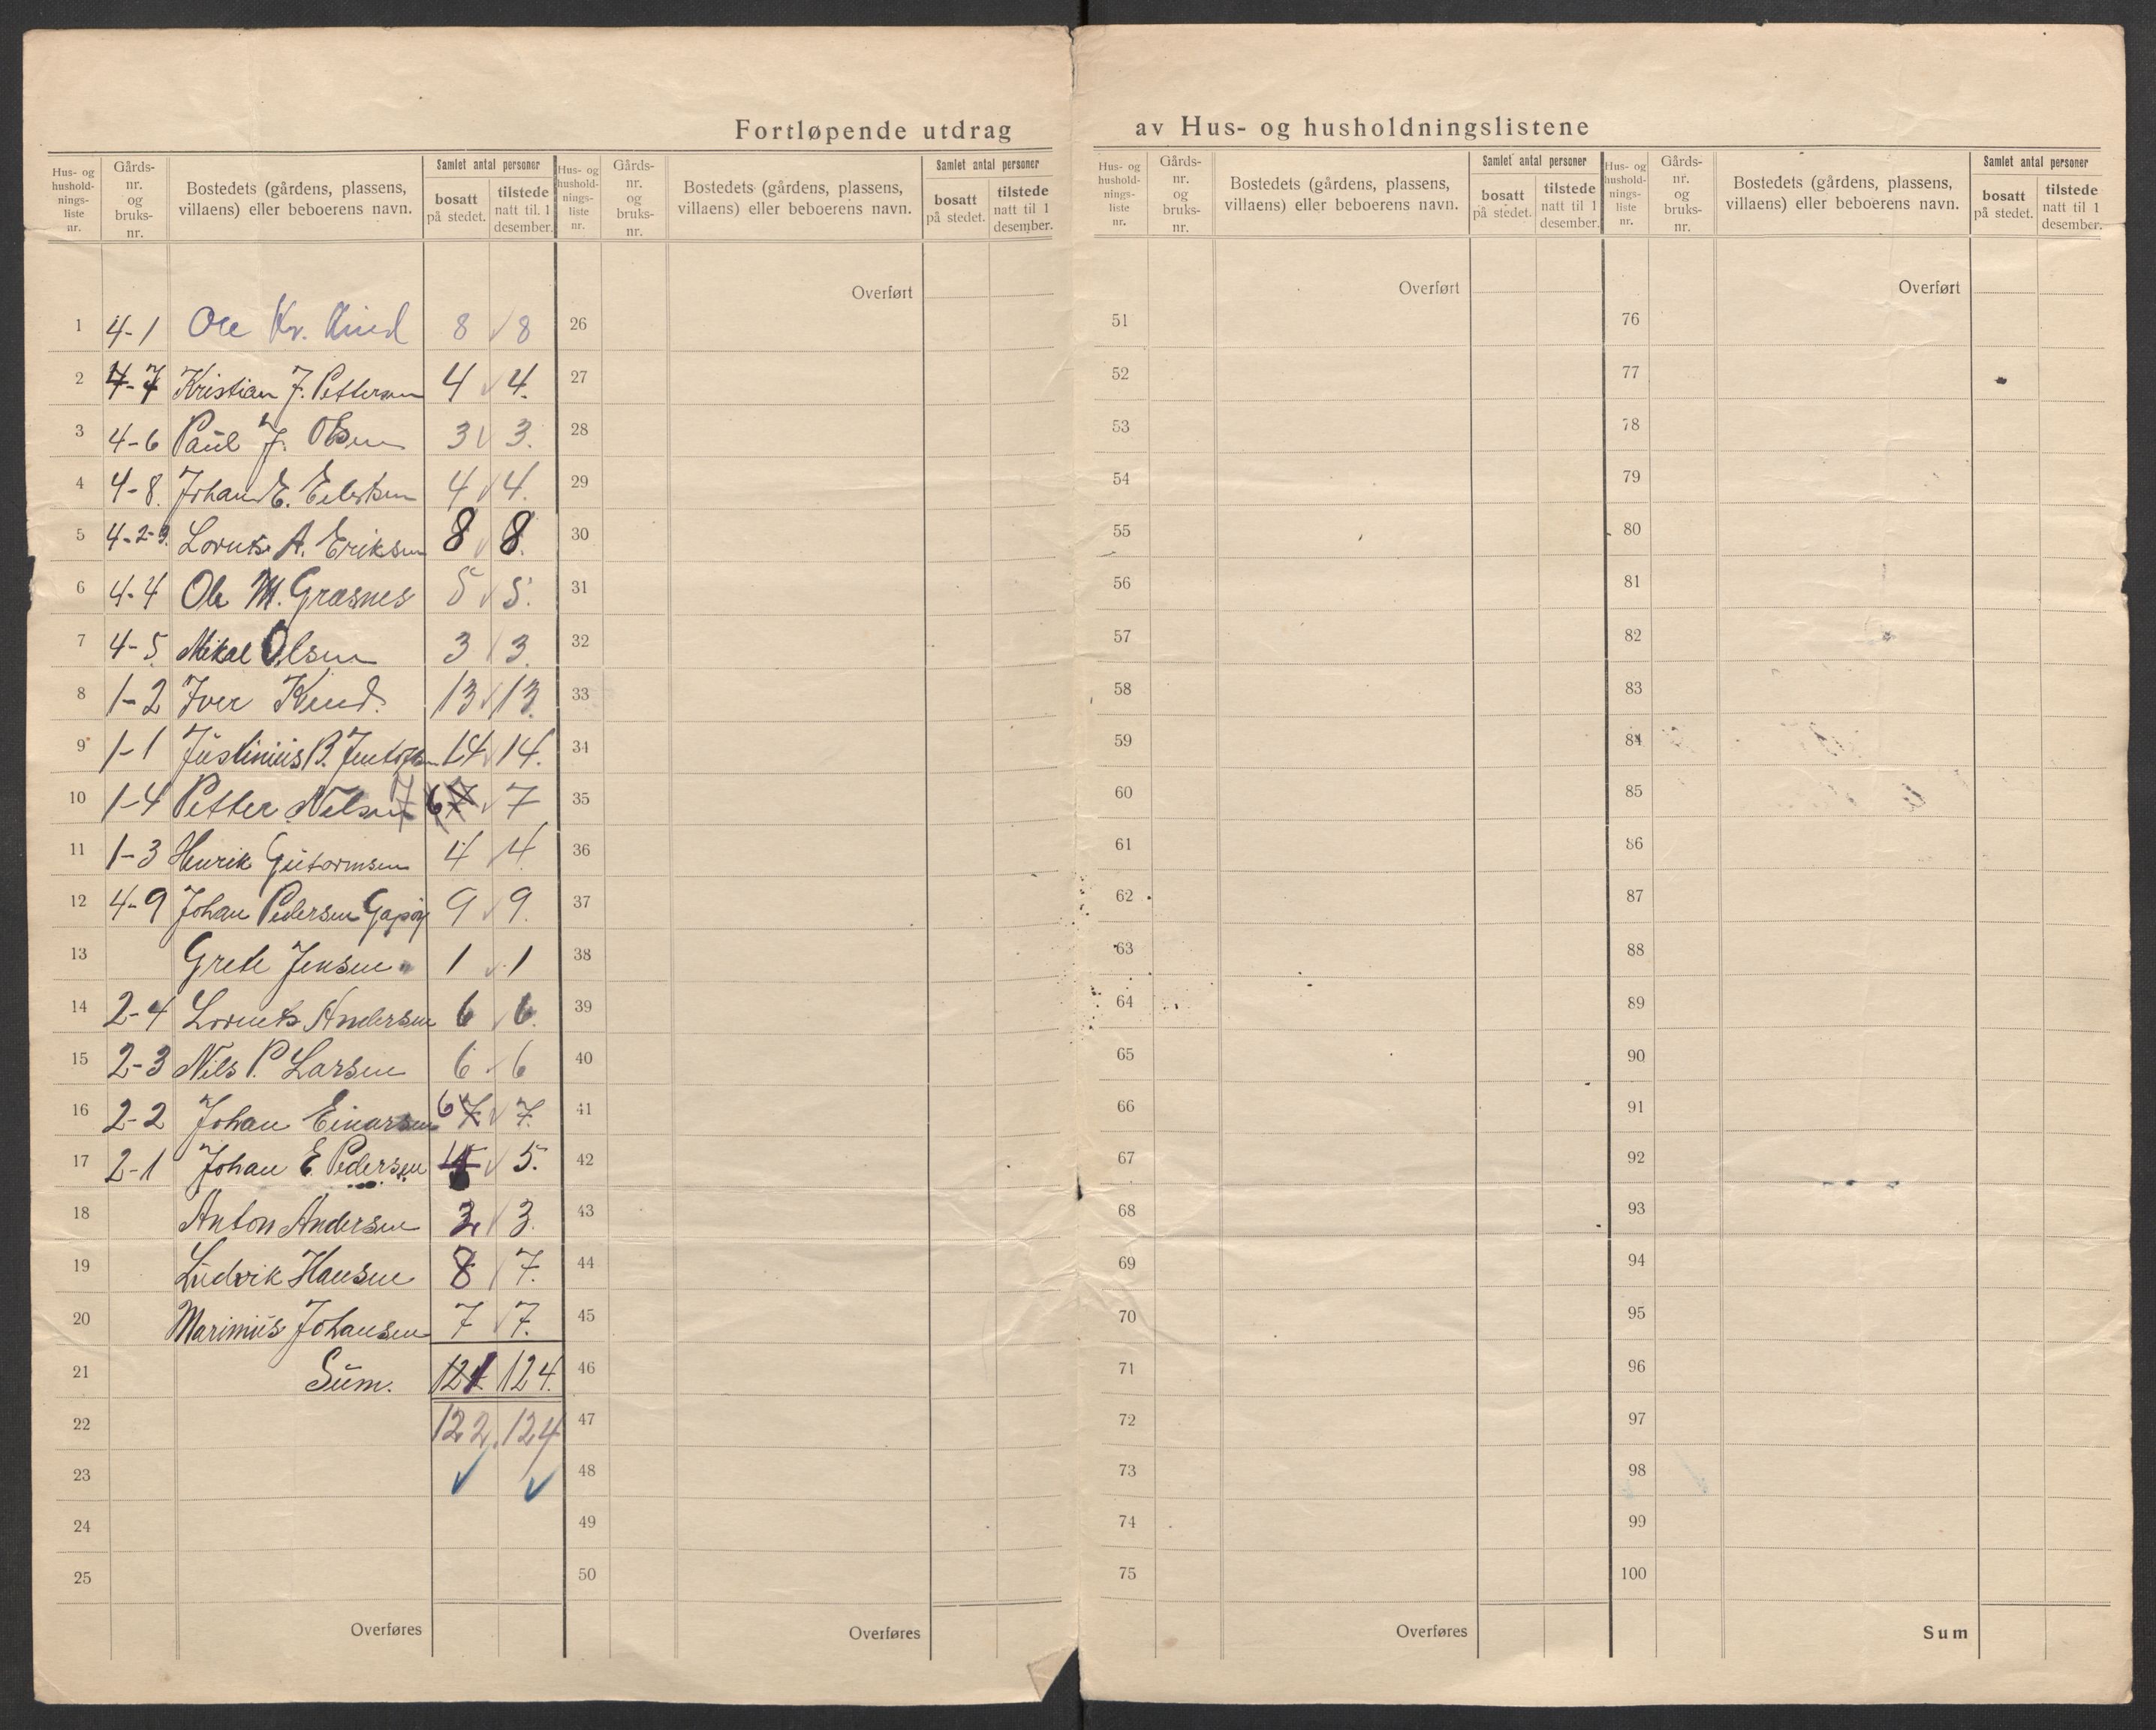 Fortløpende utdrag av Hus- og husholdningslistene
Hus- og hushold-nings-liste nr. Gårds-nr. og bruks-nr. Bostedets (gårdens, plassens, villaens) eller beboerens navn. Samlet antal personer bosatt på stedet. tilstede natt til 1 desember.
Hus- og hushold-nings-liste nr. Gårds-nr. og bruks-nr. Bostedets (gårdens, plassens, villaens) eller beboerens navn. Samlet antal personer bosatt på stedet. tilstede natt til 1 desember.
Hus- og hushold-nings-liste nr. Gårds-nr. og bruks-nr. Bostedets (gårdens, plassens, villaens) eller beboerens navn. Samlet antal personer bosatt på stedet. tilstede natt til 1 desember.
Hus- og hushold-nings-liste nr. Gårds-nr. og bruks-nr. Bostedets (gårdens, plassens, villaens) eller beboerens navn. Samlet antal personer bosatt på stedet. tilstede natt til 1 desember.
Overført Overført Overført
1 4-1 Ole Kr. Kind 8 8 26 51 76
2 4-7 Kristian J. Pettersen 4 4. 27 52 77
3 4-6 Paul J. Olsen 3 3. 28 53 78
4 4-8. Johan E. Eilertsen 4 4. 29 54 79
5 4-2-3. Lornts A. Eriksen 8 8. 30 55 80
6 4-4 Ole M. Græsnes 5 5. 31 56 81
7 4-5 Mikal Olsen 3 3. 32 57 82
8 1-2 Iver Kind. 13 13. 33 58 83
9 1-1 Justinius B. Jentoftsen 14 14. 34 59 84
10 1-4 Petter Nilsen 6 7 35 60 85
11 1-3 Henrik Gutormsen 4 4 36 61 86
12 4-9 Johan Pedersen Gapøy 9 9. 37 62 87
13 Grete Jensen 1 1 38 63 88
14 2-4 Lornts Andersen 6 6. 39 64 89
15 2-3 Nils P. Larsen 6 6 40 65 90
16 2-2 Johan Einarsen 6 7 7. 41 66 91
17 2-1 Johan E Pedersen 5. 42 67 92
18 Anton Andersen 3. 43 68 93
19 Ludvik Hansen 8 7. 44 69 94
20 Marinius Johansen 7 7. 45 70 95
21 Sum. 121 124. 46 71 96
22 122. 124 47 72 97
23 48 73 98
24 49 74 99
25 50 75 100
Overføres Overføres Overføres Sum